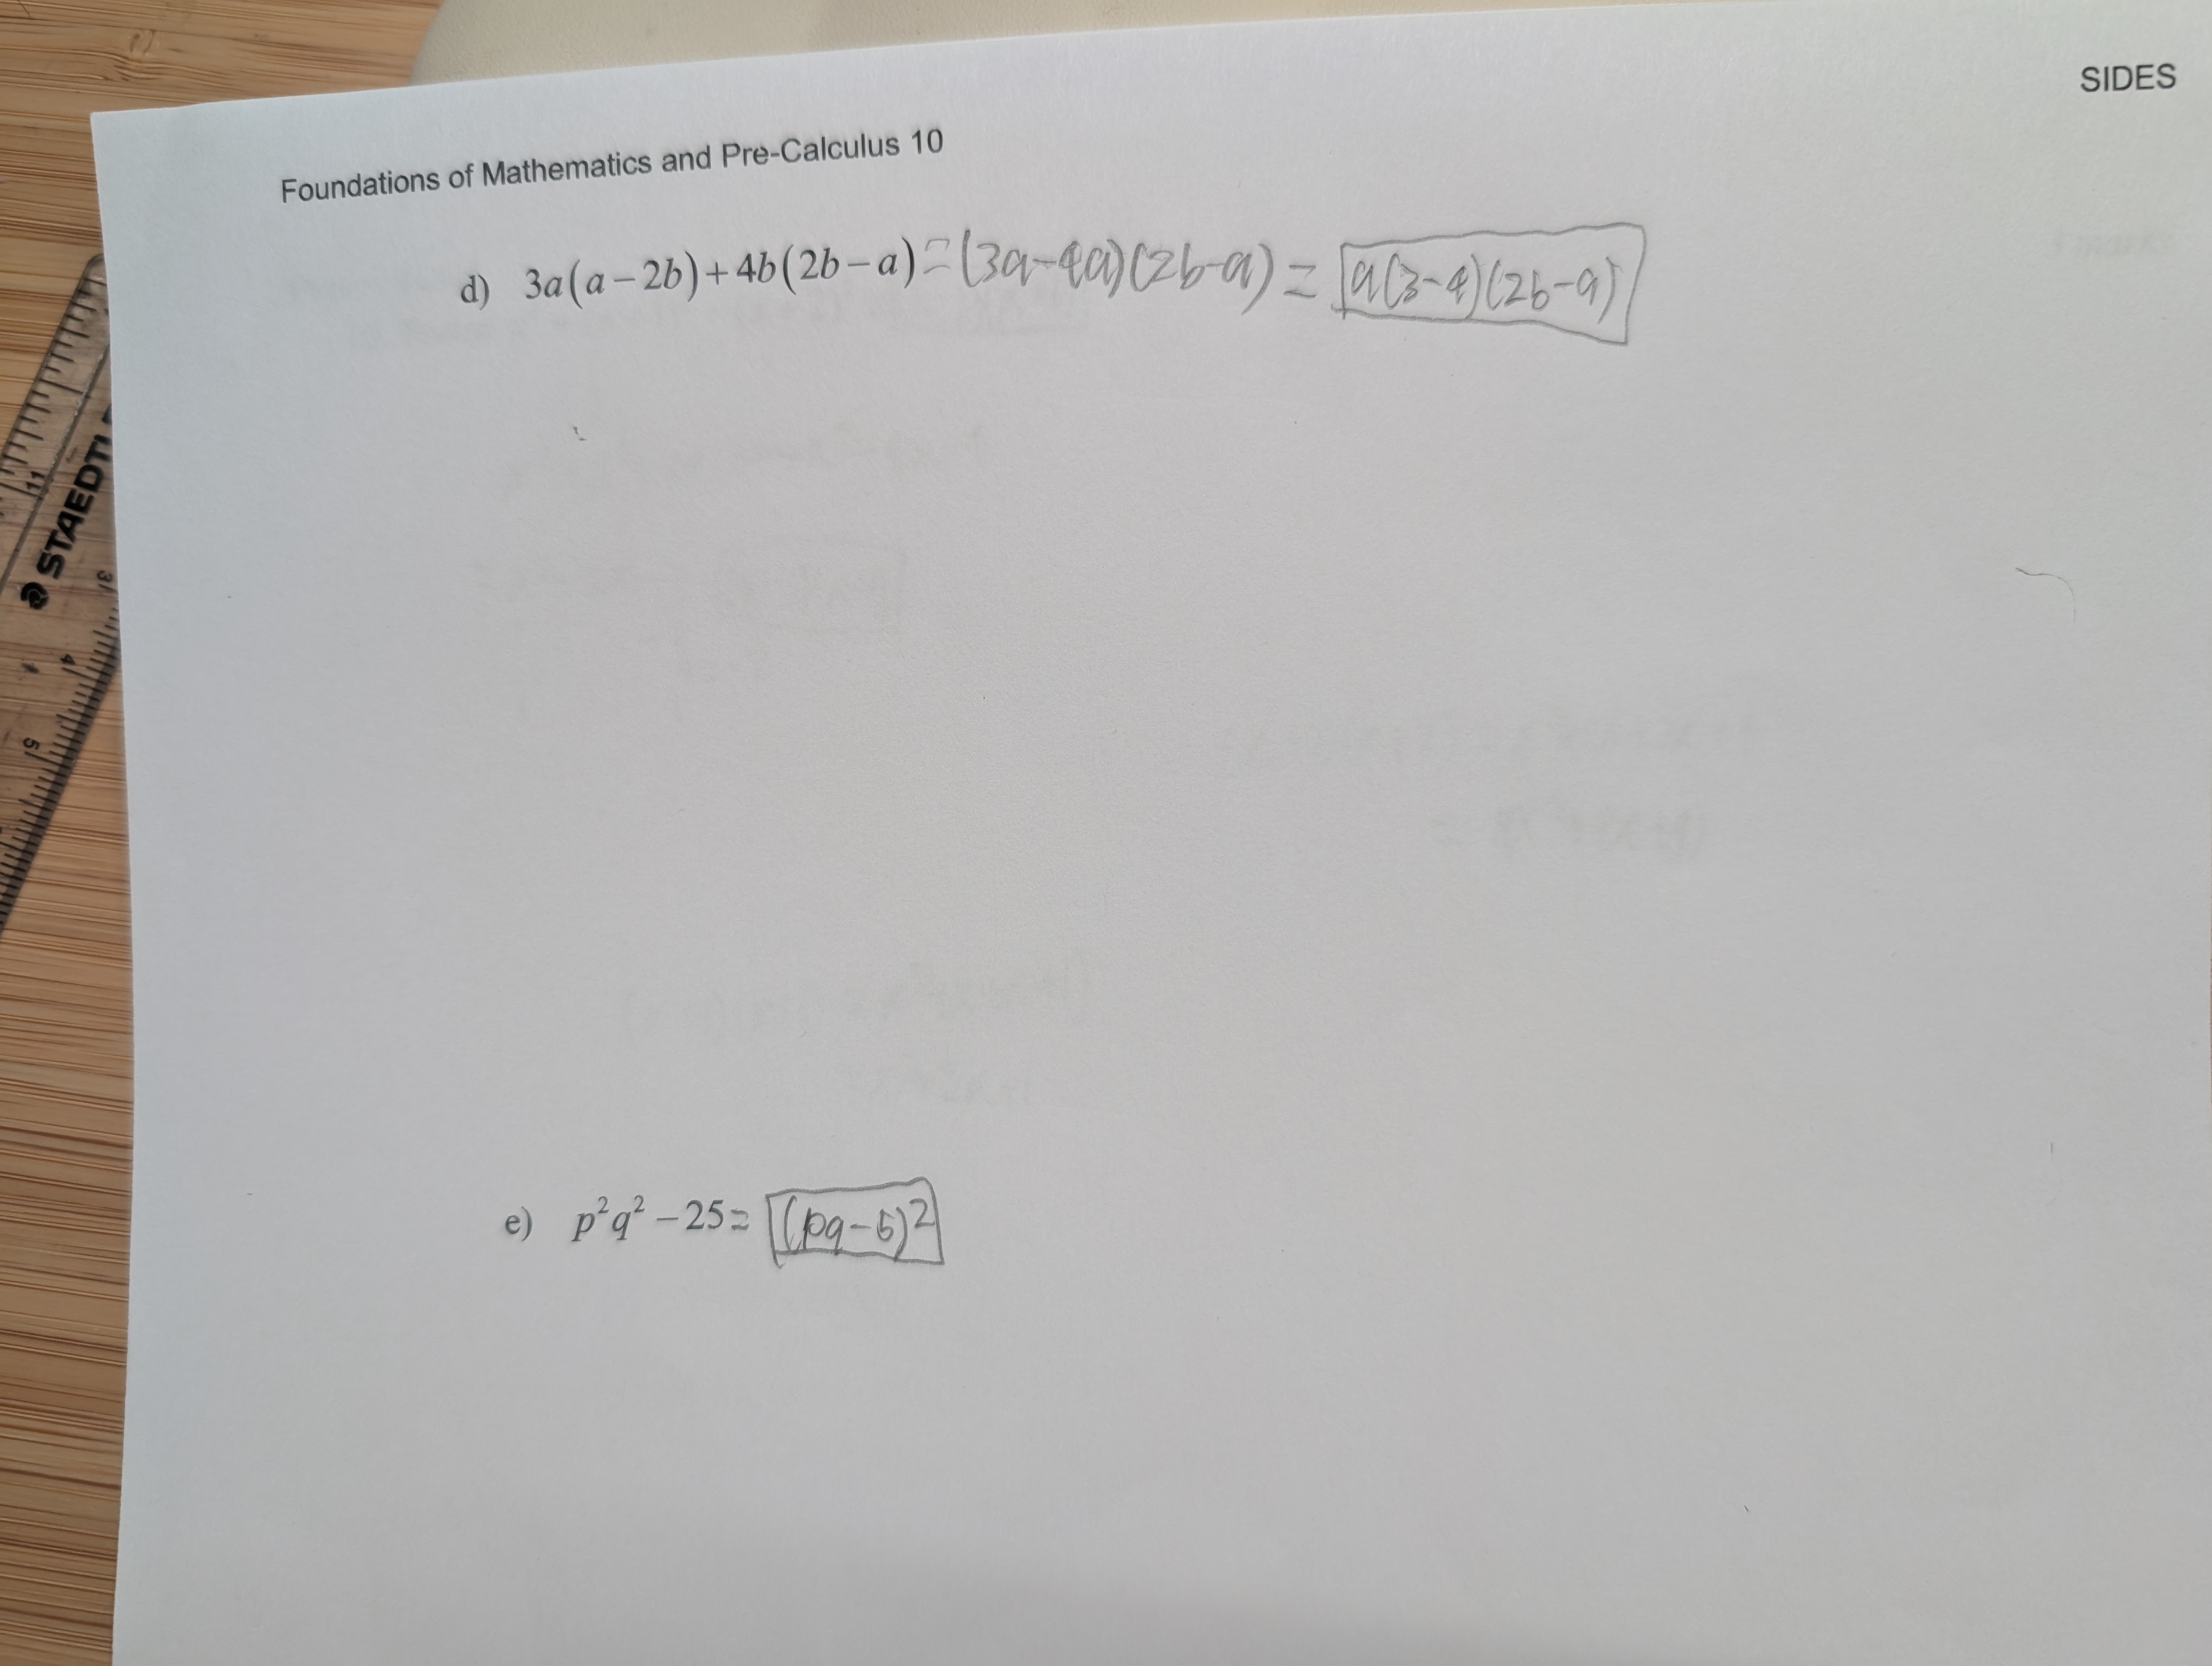 SIDES
Foundations of Mathematics and Pre-Calculus 10
d) 3a(a-2b)+4b(2b-a)=(3a-4a)(2b-a)=a(3-4)(2b-a)
e) p²q²-25=(pq-5)²
STAEDTL
11
3
4
5